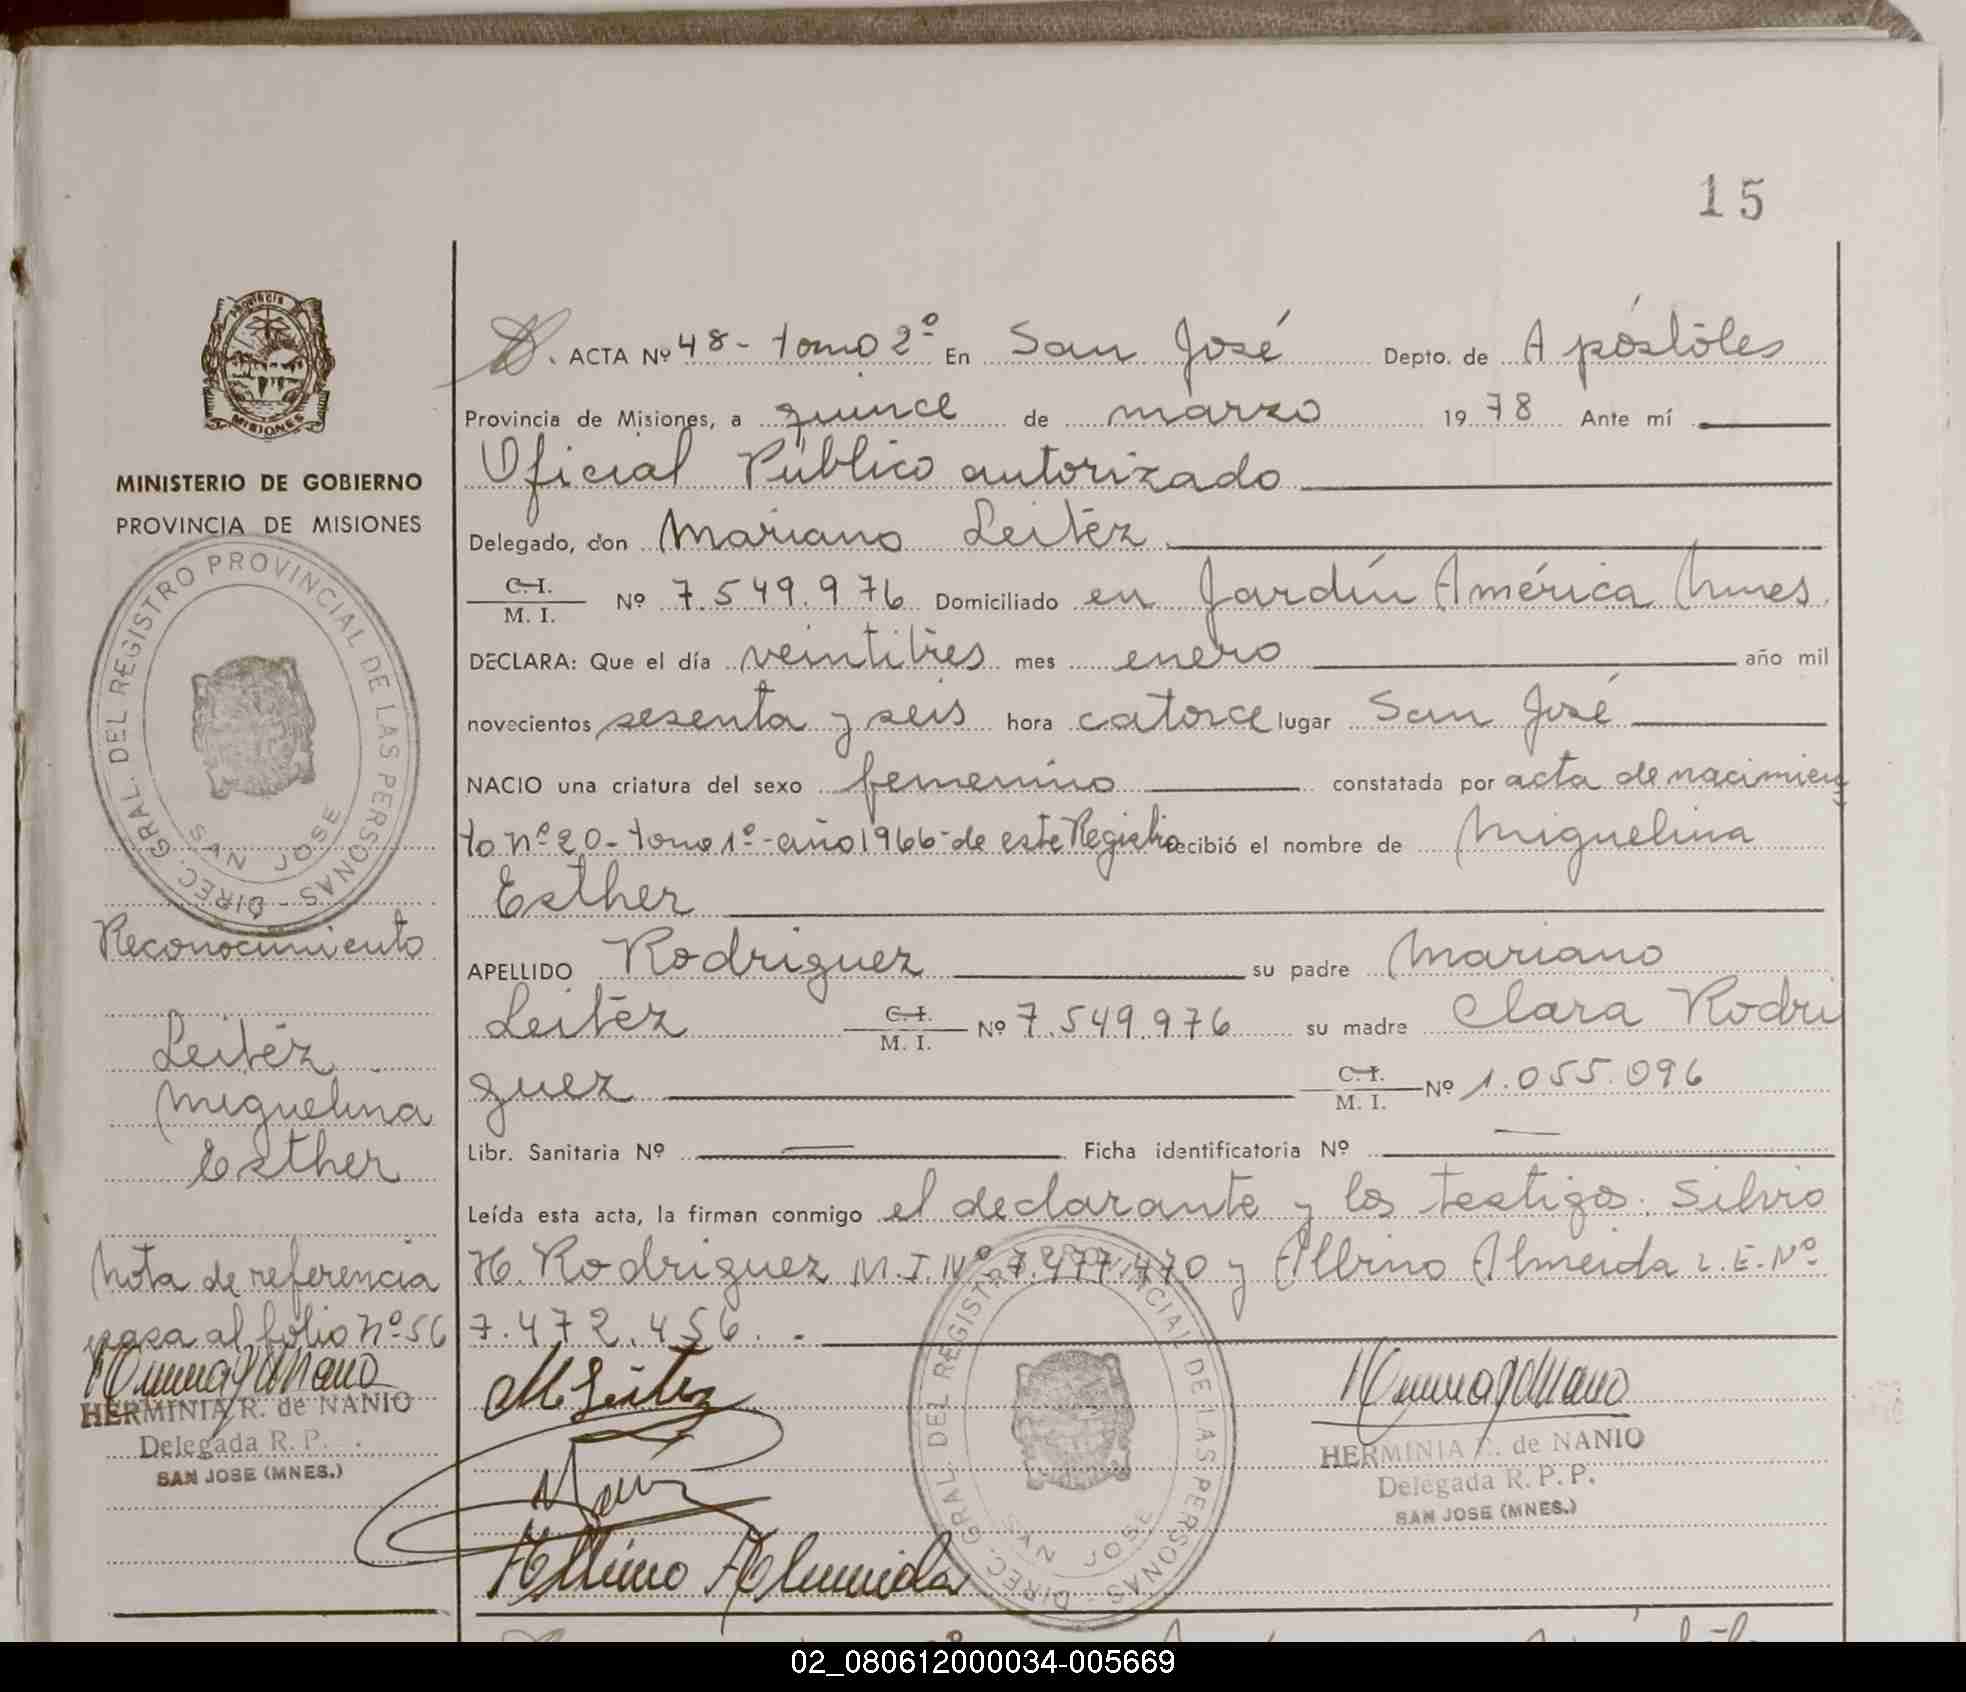 15
Provincia
MISIONES
MINISTERIO DE GOBIERNO
PROVINCIA DE MISIONES
DIREC. GRAL. DEL REGISTRO PROVINCIAL DE LAS PERSONAS -
SAN JOSE
Reconocimiento
Leitéz
Miguelina
Esther
Nota de referencia
pasa al folio Nº 56
HERMINIA R. de NANIO
Delegada R. P.
SAN JOSE (MNES.)
ACTA Nº 48 - tomo 2º En San José Depto. de Apóstoles
Provincia de Misiones, a quince de marzo 19 78 Ante mí
Oficial Público autorizado
Delegado, don Mariano Leitéz
C. I.
M. I. Nº 7.549.976 Domiciliado en Jardín América Mnes.
DECLARA: Que el día veintitrés mes enero año mil
novecientos sesenta y seis hora catorce lugar San José
NACIO una criatura del sexo femenino constatada por acta de nacimien
to nº 20 - tomo 1º - año 1966 - de este Registro recibió el nombre de Miguelina
Esther
APELLIDO Rodriguez su padre Mariano
Leitéz C. I. M. I. Nº 7.549.976 su madre Clara Rodri
guez C. I. M. I. Nº 1.055.096
Libr. Sanitaria Nº — Ficha identificatoria Nº —
Leída esta acta, la firman conmigo el declarante y los testigos. Silvio
H. Rodriguez M.I. Nº 7.477.470 y Albino Almeida L.E. Nº
7.472.456. -
M Leitez
Albino Almeida
DIREC. GRAL. DEL REGISTRO PROVINCIAL DE LAS PERSONAS -
SAN JOSE
HERMINIA R. de NANIO
Delegada R. P. P.
SAN JOSE (MNES.)
02_080612000034-005669